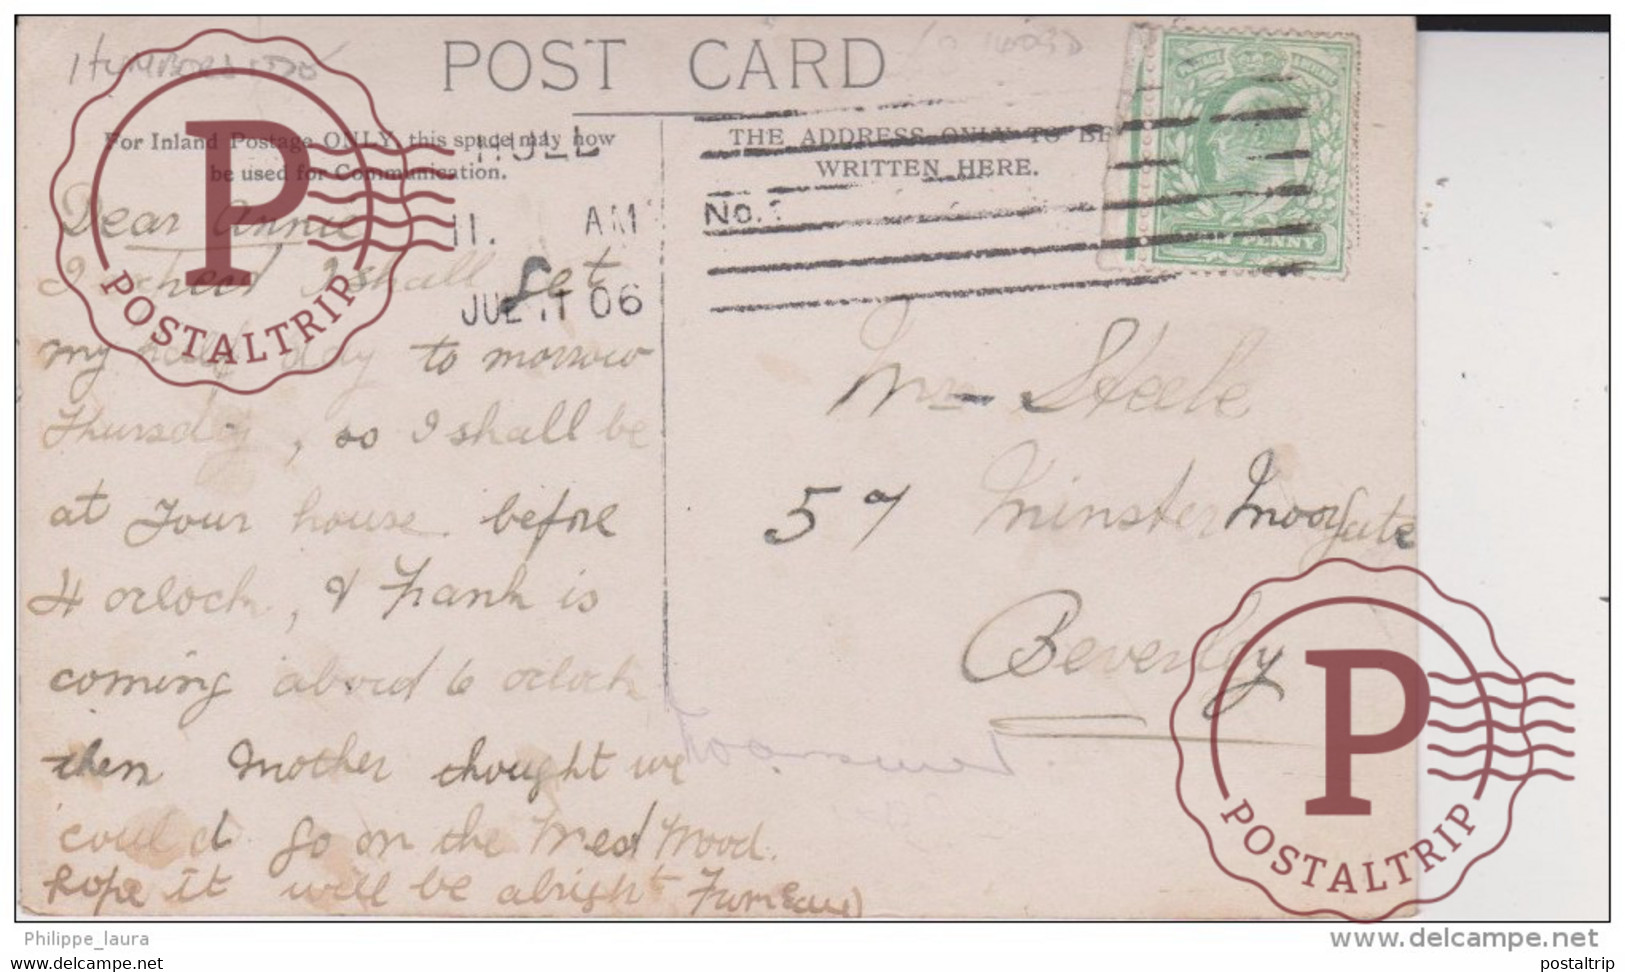 POST CARD
For Inland Postage ONLY, this space may now
be used for Communication.
THE ADDRESS ONLY TO BE
WRITTEN HERE.
HULL
11. AM
JUL 11 06
No.
HALF PENNY
Dear Annie
I shall get
my half day to morrow
Thursday, so I shall be
at your house before
4 oclock, & Frank is
coming abord 6 oclock
then Mother thought we
could go on the Wood.
hope it will be alright
Mrs Steele
57 Minster Moorgate
Beverley
POSTALTRIP
POSTALTRIP
Philippe_laura
www.delcampe.net
www.delcampe.net
postaltrip